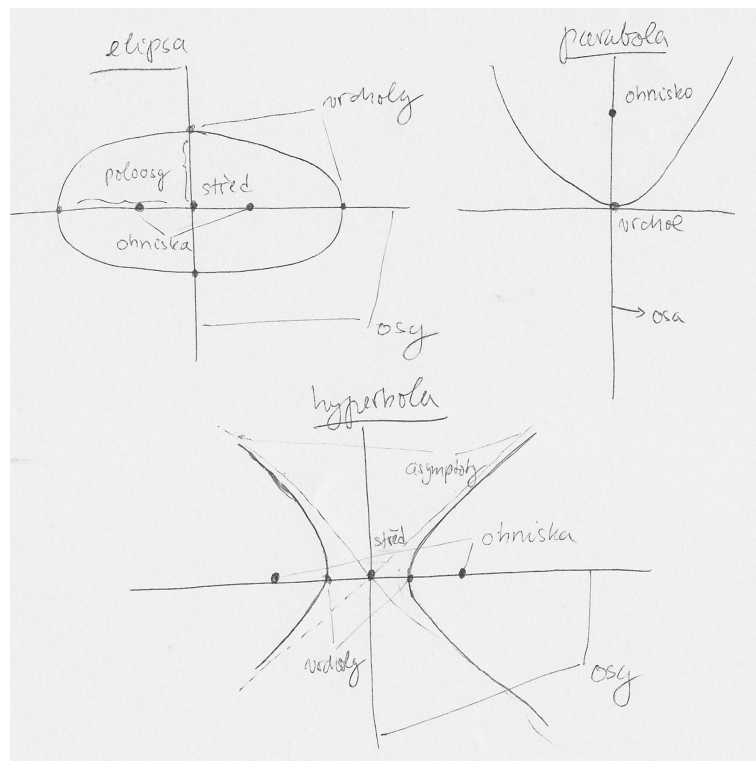 elipsa
vrcholy
poloosy
střed
ohniska
osy
parabola
ohnisko
vrchol
osa
hyperbola
asymptoty
střed
ohniska
vrcholy
osy